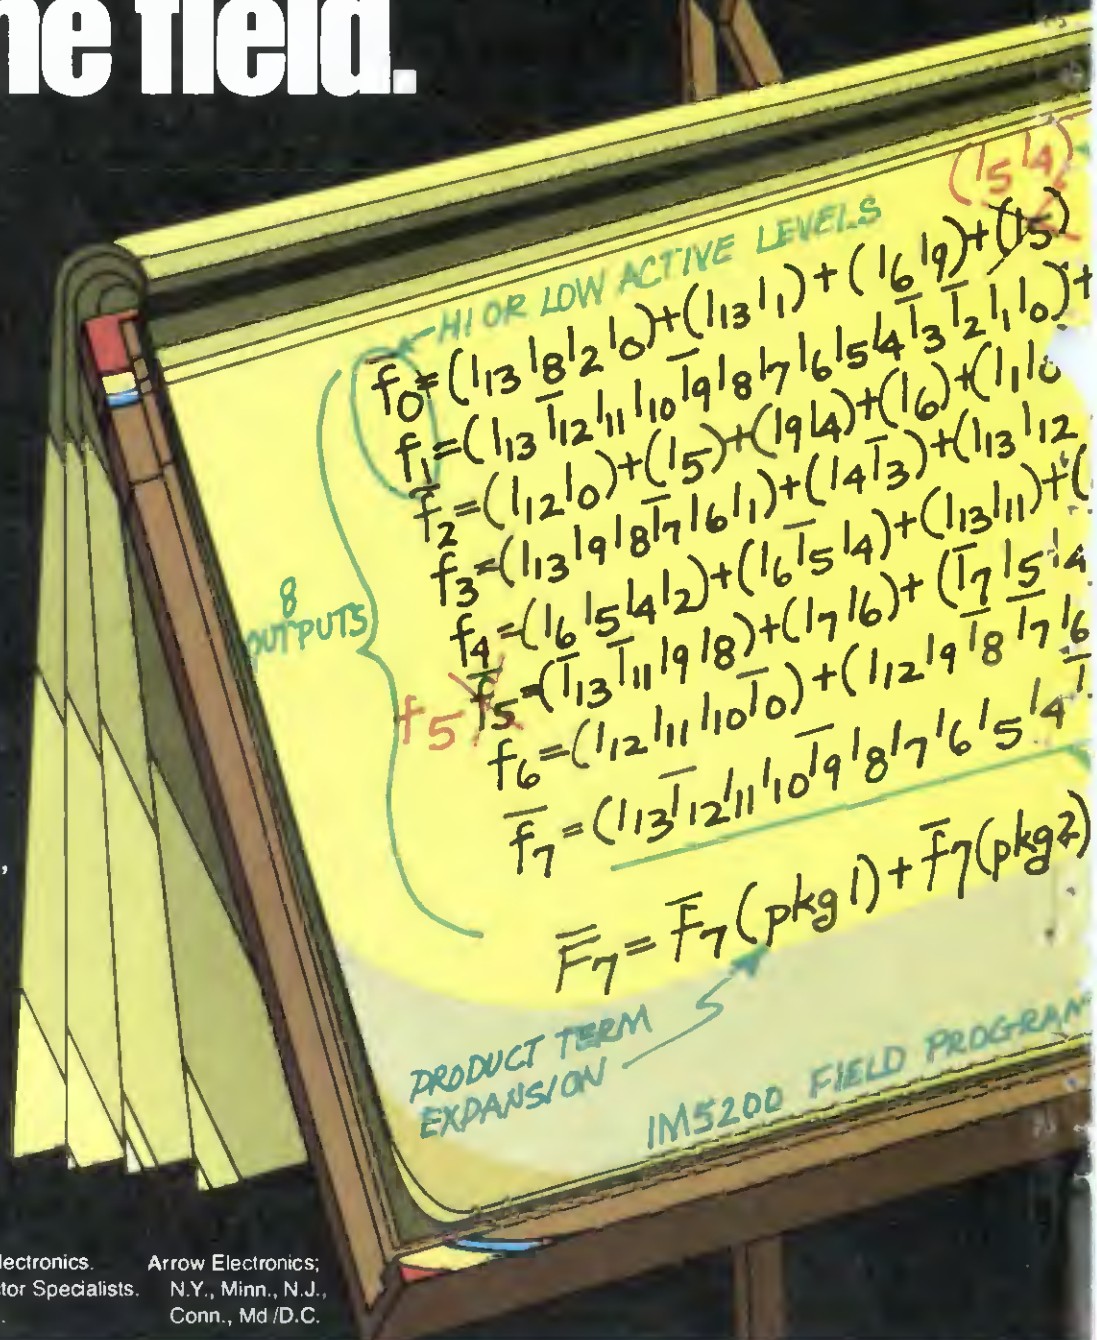 he field.
(I5I4)
HI OR LOW ACTIVE LEVELS
f̅0=(I13I8I2I0)+(I13I1)+(I6I9)+(I5)
f1=(I13I̅12I11I10I̅9I8I7I6I5I4I̅3I̅2I1I0)+
f̅2=(I12I0)+(I5)+(I9I4)+(I6)+(I1I0
f3=(I13I9I8I̅7I6I1)+(I4I̅3)+(I13I12
f4=(I6I5I4I2)+(I6I̅5I4)+(I13I11)+(
f5 f̅5=(I̅13I̅11I9I8)+(I7I6)+(I̅7I5I4
f6=(I12I11I10I̅0)+(I12I9I̅8I̅7I6
f̅7=(I13I̅12I11I10I̅9I8I7I6I5I4
8
OUTPUTS
F̅7=F̅7(pkg1)+F̅7(pkg2)
PRODUCT TERM
EXPANSION
IM5200 FIELD PROGRAM
lectronics.
tor Specialists.
Arrow Electronics;
N.Y., Minn., N.J.,
Conn., Md/D.C.